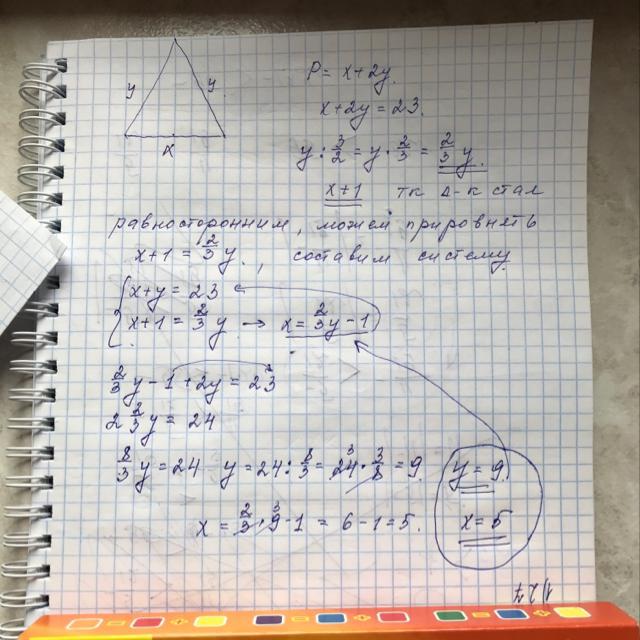 y y
x
P = x+2y.
x+2y = 23.
y : 3/2 = y · 2/3 = 2/3 y.
x+1 тк Δ-к стал
равносторонним, можем прировнять
x+1 = 2/3 y., составим систему
{ x+y = 23
x+1 = 2/3 y → x = 2/3 y - 1
2/3 y - 1 + 2y = 23
2 2/3 y = 24
8/3 y = 24 y = 24 : 8/3 = 24 3 · 3/8 = 9. y = 9.
x = 2/3 · 9 3 - 1 = 6 - 1 = 5. x = 5